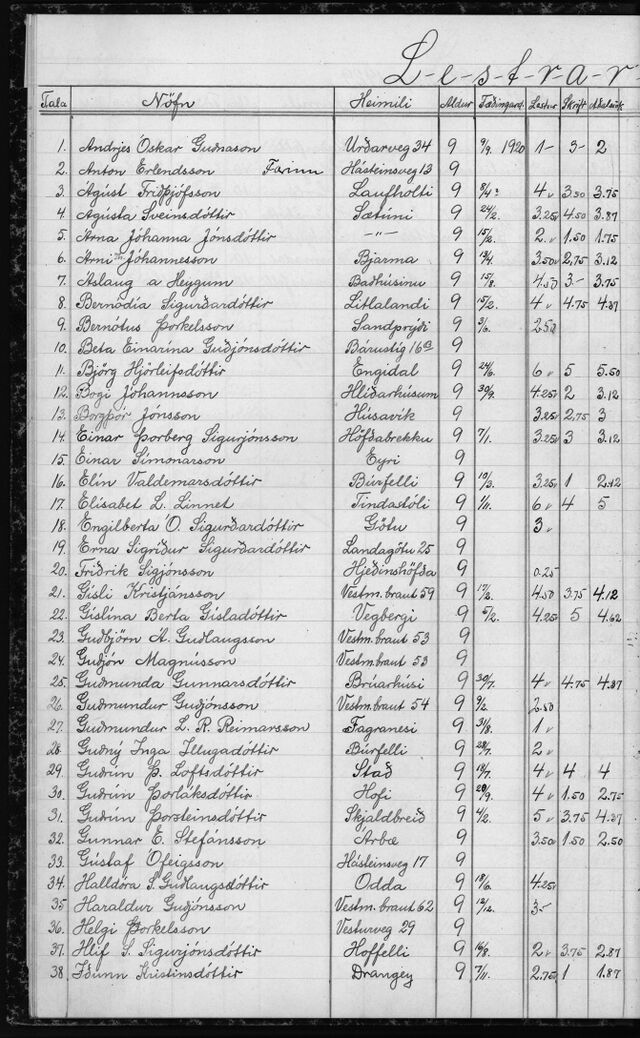 L-e-s-t-r-a-r
Tala Nöfn Heimili Aldur Fæðingard. Lestur Skrift Aðaleink.
1. Andrjes Óskar Guðnason Urðarveg 34 9 9/9. 1920 1- 3- 2
2. Anton Erlendsson Farinn Hásteinsveg 13 9
3. Ágúst Friðþjófsson Laufholti 9 8/4 4 v 3.50 3.75
4. Ágústa Sveinsdóttir Sætúni 9 24/2. 3.25 4.50 3.87
5. Arna Jóhanna Jónsdóttir -"- 9 15/2. 2. v 1.50 1.75
6. Árni Jóhannesson Bjarma 9 13/4. 3.50 v 2.75 3.12
7. Áslaug a Heygum Baðhúsinu 9 15/8. 4.50 3- 3.75
8. Bernódía Sigurðardóttir Litlalandi 9 15/2. 4 v 4.75 4.37
9. Bernótus Þorkelsson Sandprýði 9 3/6. 2.50
10. Beta Einarína Guðjónsdóttir Bárustíg 16a 9
11. Björg Hjörleifsdóttir Engidal 9 24/6. 6 v 5 5.50
12. Bogi Jóhannsson Hlíðarhúsum 9 30/9. 4.25 2 3.12
13. Borgþór Jónsson Húsavík 9 3.25 2,75 3
14. Einar Þorberg Sigurjónsson Höfðabrekku 9 7/1. 3.25 3 3.12
15. Einar Símonarson Eyri 9
16. Elín Valdemarsdóttir Búrfelli 9 10/3. 3.25 1 2.12
17. Elísabet L. Linnet Tindastóli 9 1/11. 6 v 4 5
18. Engilberta Ó. Sigurðardóttir Götu 9 3 v
19. Erna Sigríður Sigurðardóttir Landagötu 25 9
20. Friðrik Sigjónsson Hjeðinshöfða 9 0.25
21. Gísli Kristjánsson Vestm.braut 59 9 17/2. 4.50 3.75 4.12
22. Gíslína Berta Gísladóttir Vegbergi 9 5/2. 4.25 5 4.62
23. Guðbjörn A. Guðlaugsson Vestm.braut 53 9
24. Guðjón Magnússon Vestm.braut 53 9
25. Guðmunda Gunnarsdóttir Brúarhúsi 9 30/7. 4 v 4.75 4.37
26. Guðmundur Guðjónsson Vestm.braut 54 9 9/2. 2.50
27. Guðmundur L. R. Reimarsson Fagranesi 9 31/8. 1 v
28. Guðný Inga Illugadóttir Búrfelli 9 28/7. 2 v
29. Guðrún Þ. Loftsdóttir Stað 9 18/7. 4 v 4 4
30. Guðrún Þorláksdóttir Hofi 9 20/9. 4 v 1.50 2.75
31. Guðrún Þorsteinsdóttir Skjaldbreið 9 4/2. 5 v 3.75 4.37
32. Gunnar E. Stefánsson Arbæ 9 3.50 1.50 2.50
33. Gústaf Ófeigsson Hásteinsveg 17 9
34. Halldóra S. Guðlaugsdóttir Odda 9 18/6. 4.25
35 Haraldur Guðjónsson Vestm.braut 62 9 12/12. 3-
36. Helgi Þorkelsson Vesturveg 29 9
37. Hlíf S. Sigurjónsdóttir Hoffelli 9 16/8. 2 v 3.75 2.87
38. Iðunn Kristinsdóttir Drangey 9 7/11. 2.75 1 1.87